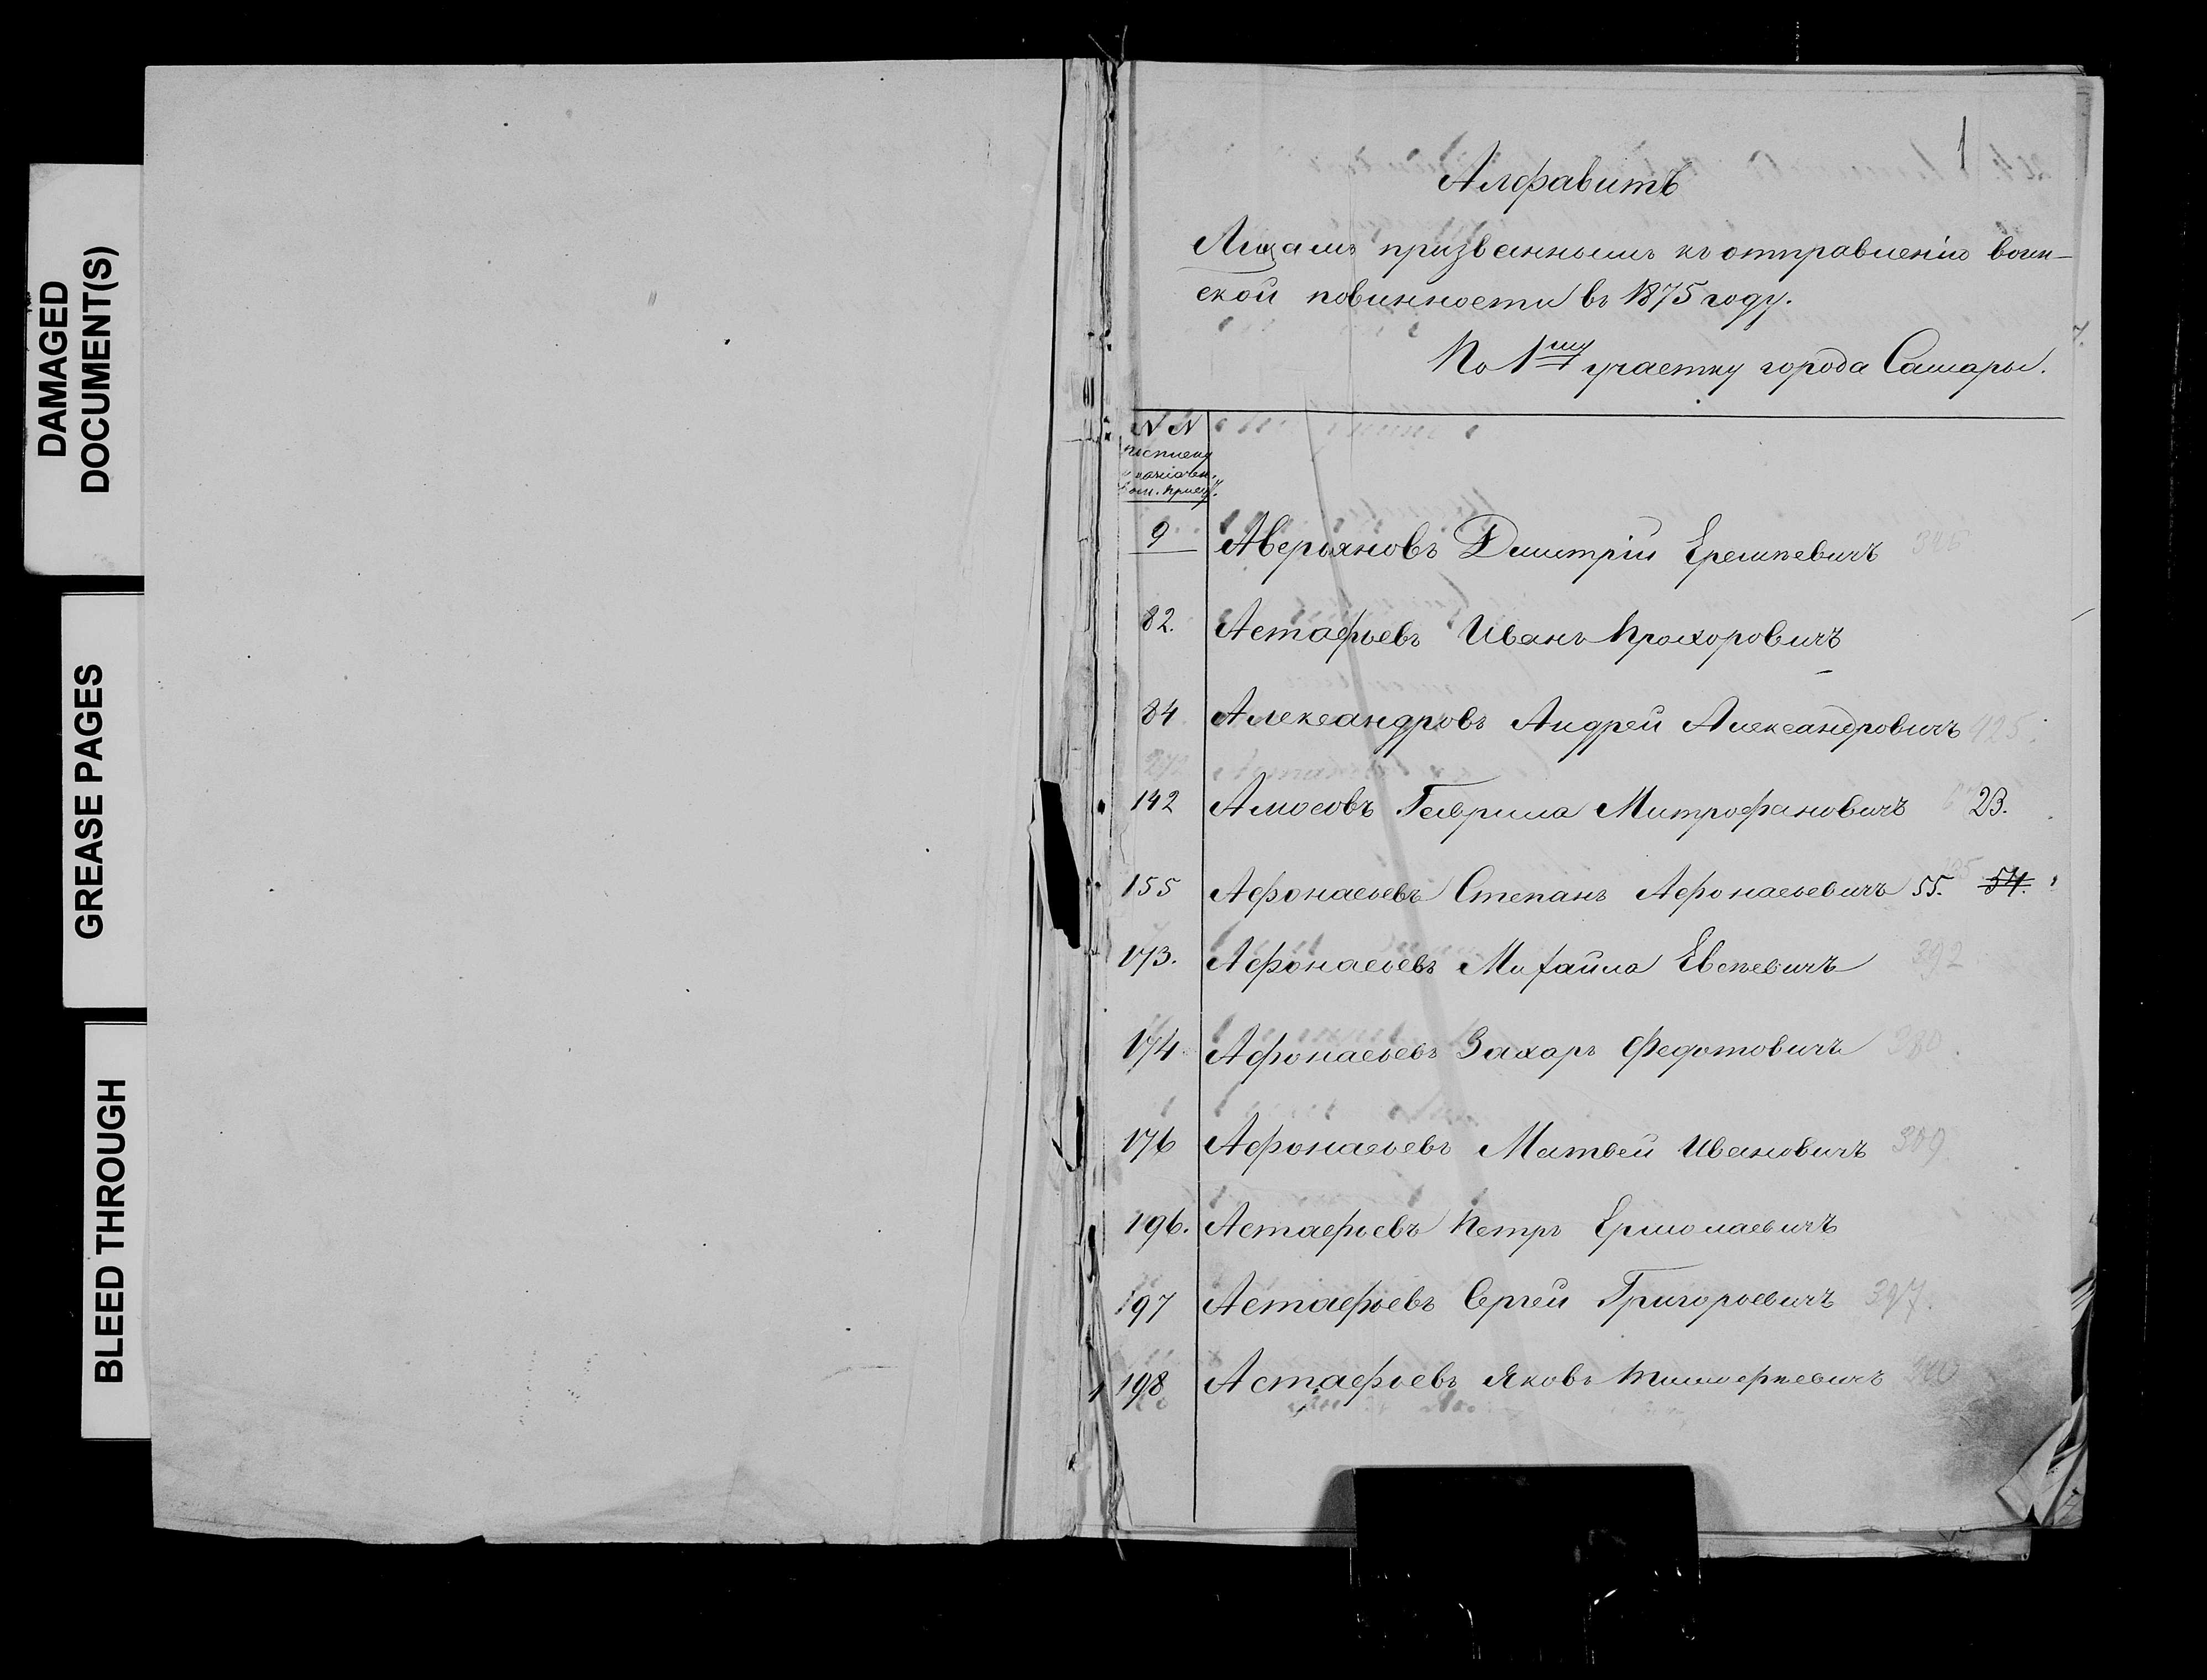 DAMAGED
DOCUMENT(S)
GREASE PAGES
BLEED THROUGH
1
Алфавитъ
Лицамъ призваннымъ къ отправленію воин-
ской повинности въ 1875 году.
По 1му участку города Самары.
N N
9 Аверьяновъ Димитрій Еремѣевичъ
82. Астафьевъ Иванъ Прохоровичъ
84 Александровъ Андрей Александровичъ 425
142 Амосовъ Гаврила Митрофановичъ 23.
155 Афонасьевъ Степанъ Афонасьевичъ 55. 54.
173. Афонасьевъ Михайла Евсѣевичъ 392
174 Афонасьевъ Захаръ Федотовичъ
176 Афонасьевъ Матвей Ивановичъ 309
196. Астафьевъ Петръ Ермолаевичъ
197 Астафьевъ Сергей Григорьевичъ 397.
198 Астафьевъ Яковъ Тимофѣевичъ